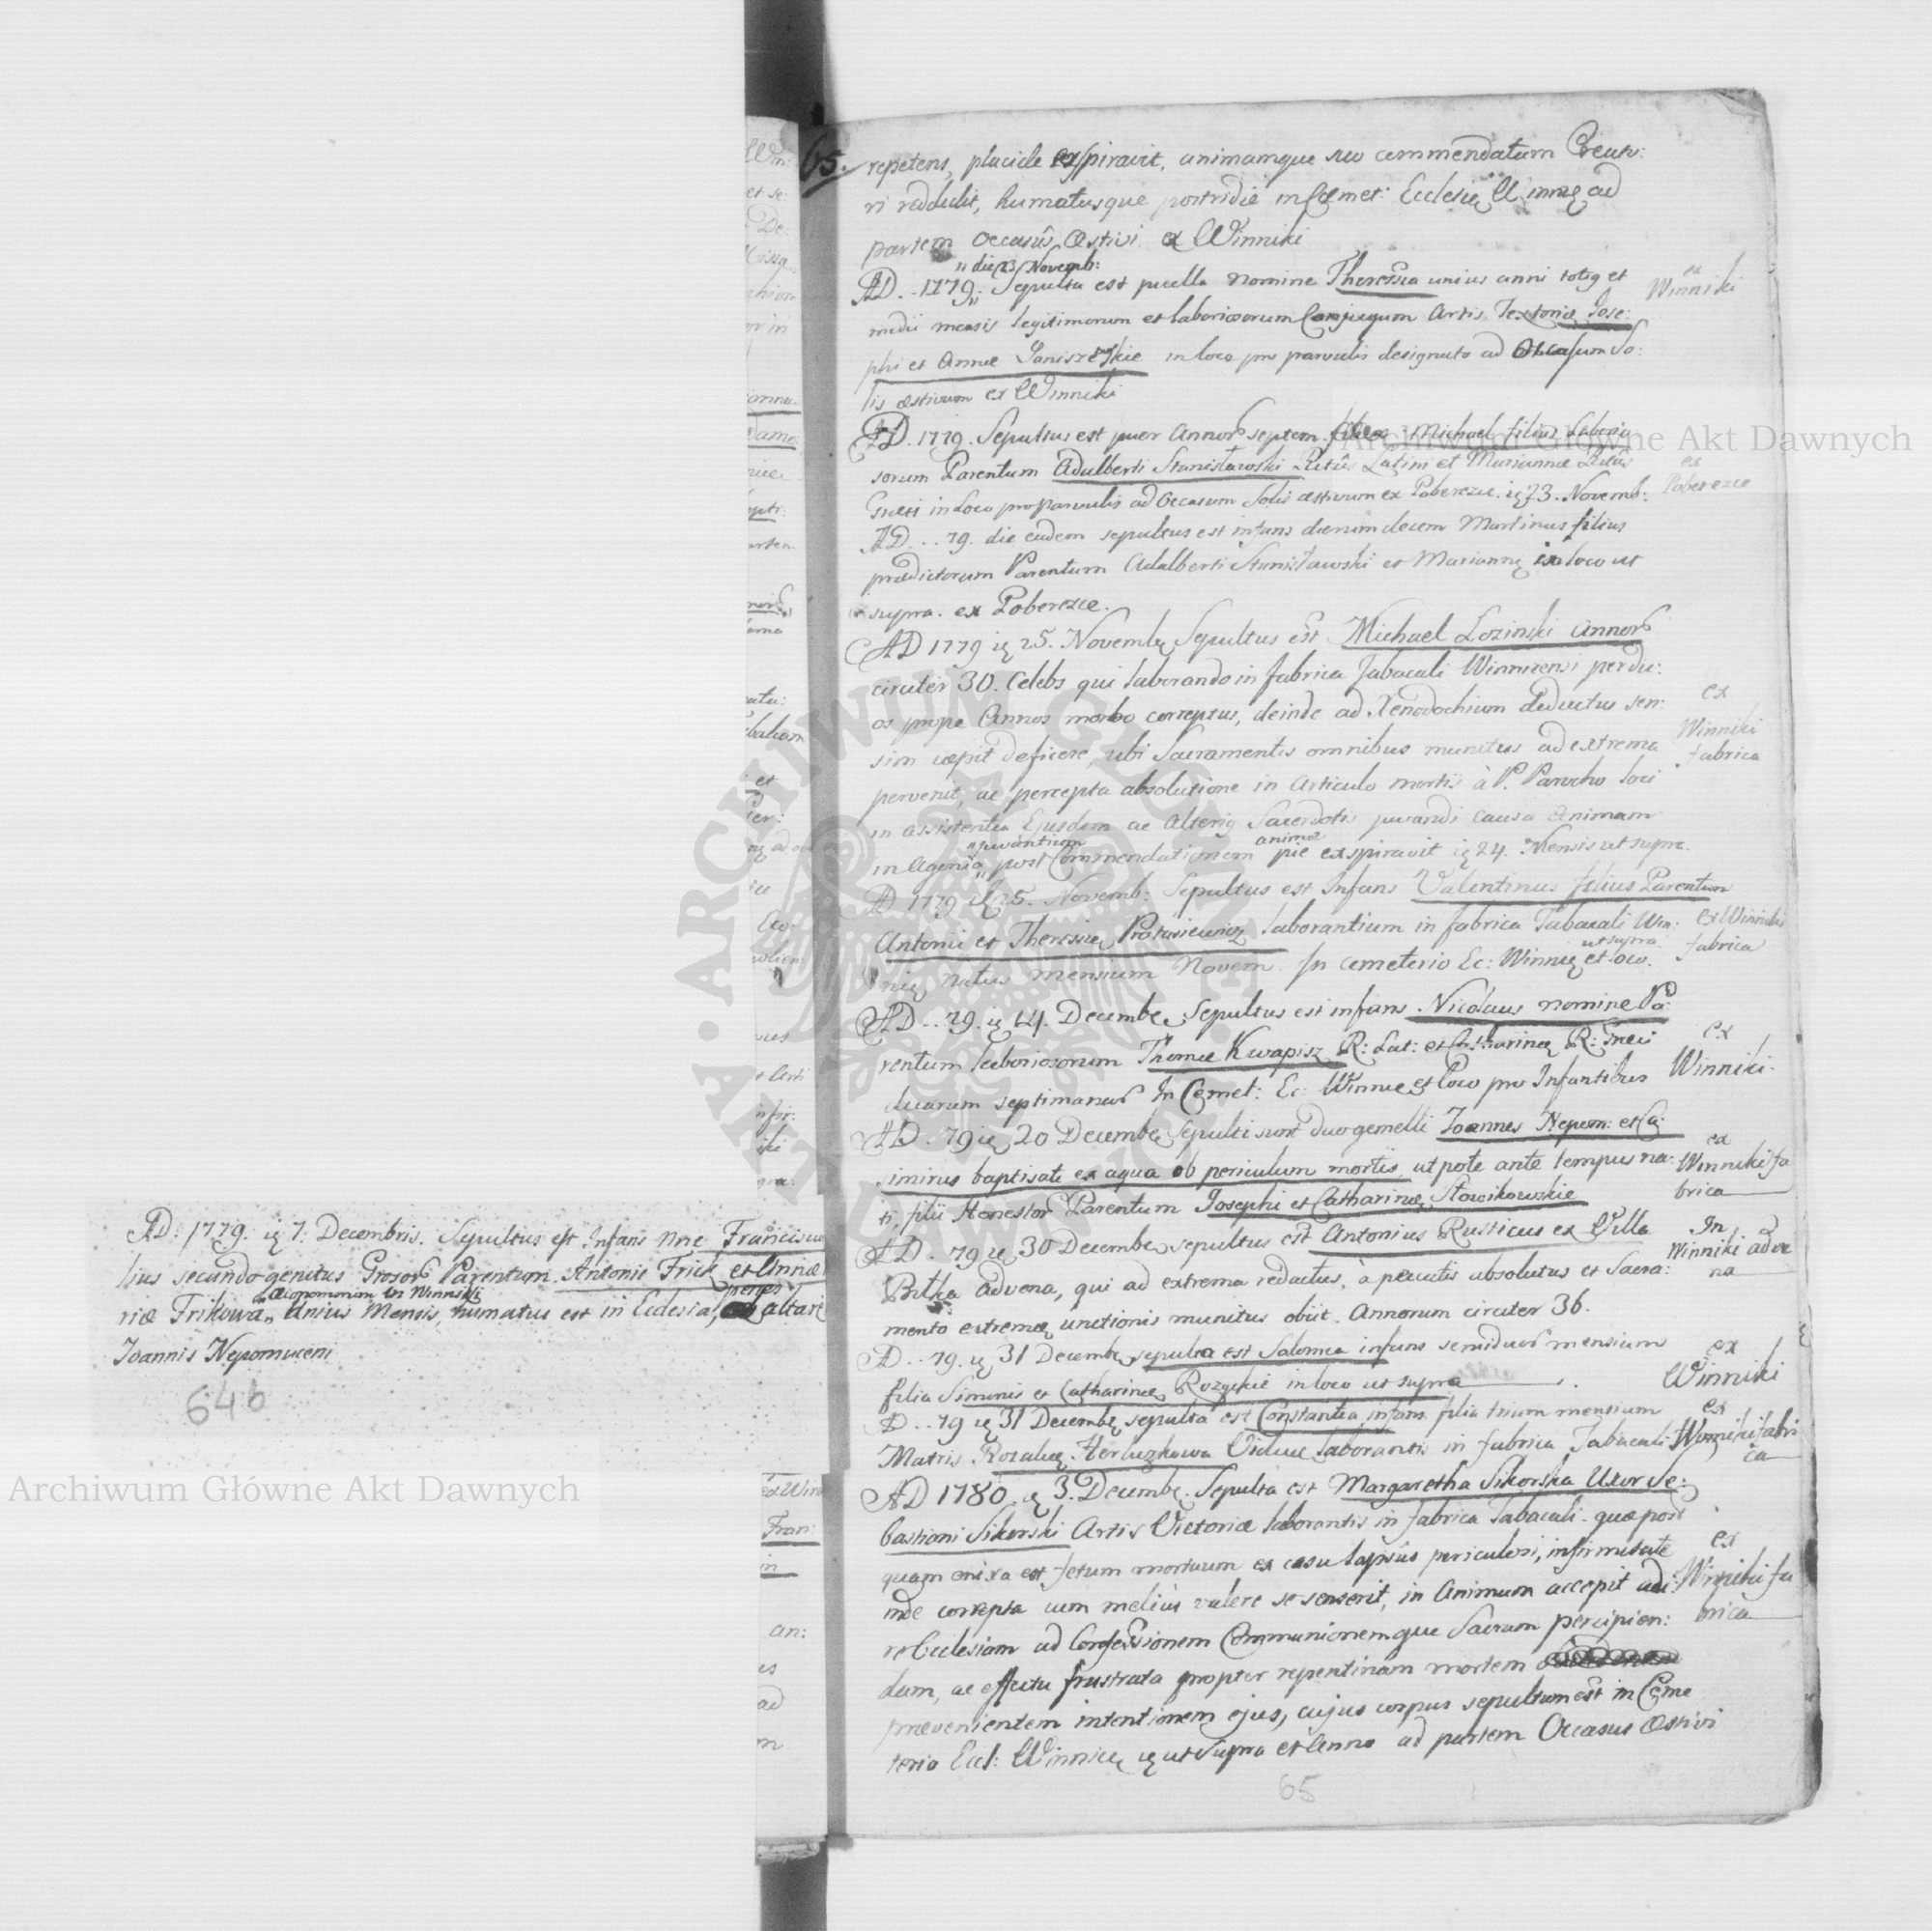 65.
repetens, placide exspiravit, animamque suo commendatam Creato:
ri reddidit, humatusque postridie in Cœmet: Ecclesię Winnię ad
partem Occasûs Æstivi ex Winniki
„ die 23 Novemb:
AD. 1779 „ Sepulta est puella nomine Theressia unius anni totię et
medii mensis legitimorum et laboriosorum Conjugum Artis Textoriæ Jose:
phi et Annæ in loco pro parvulis designato ad Occasum So:
lis æstivum ex Winniki
ex
Winniki
AD. 1779. Sepultus est puer Annorũ septem Michael filius Laborio
sorum Parentum Adalberti Stanisławski Ritûs Latini et Mariannæ Ritûs
Græci in loco pro parvulis ad Occasum Solis æstivum ex Poberezce. ię 23. Novemb:
ex
Poberezce
AD. . . 79. die eadem sepultus est infans dierum decem Martinus filius
prædictorum Parentum Adalberti Stanisławski et Mariannę in loco ut
supra. ex Poberezce.
AD 1779 ię 25. Novembę Sepultus est Michael Lozinski Annorũ
circiter 30. Celebs qui laborando in fabrica Tabacali Winnicensi per du:
os prope Annos morbo correptus, deinde ad Xenodochium deductus sen:
sim cæpit deficere, ubi Sacramentis omnibus munitus ad extrema
pervenit, ac percepta absolutione in Articulo mortis à P. Parocho loci
in assistentia Ejusdem ac Alterię Sacerdotis juvandi causa Animam
in Agonia „juvantium post Commendationem animæ pie exspiravit ię 24. Mensis ut supra.
ex
Winniki
fabrica
AD 1779 ię 25. Novemb: Sepultus est Infans Valentinus filius Parentum
Antonii et Theressię Protasiewicz laborantium in fabrica Tabacali Win:
nię natus mensium Novem. In cemeterio Ec: Winnię et loco ut supra.
ex Winniki
fabrica
AD . . 79. ię 14. Decembę Sepultus est infans Nicolaus nomine Pa:
rentum laboriosorum Thomæ Kwapisz R: Lat: et Catharinę R: Græci
duarum septimanarũ In Cemet: Ec: Winnię et loco pro Infantibus
ex
Winniki.
AD . 79 ię 20 Decembę Sepulti sunt duo gemelli Joannes Nepom: et Ca:
simirus baptisati ex aqua ob periculum mortis, utpote ante tempus na:
ti, filii Honestorũ Parentum Josephi et Catharinę Słowikowskie
ex
Winniki fa
brica
AD . 79 ię 30 Decembę sepultus est Antonius Rusticus ex Villa
advena, qui ad extrema redactus, à peccatis absolutus et Sacra:
mento extremę unctionis munitus obiit. Annorum circiter 36.
In
Winniki adve
na
AD . . 79. ię 31 Decembę sepulta est Salomea infans semiduorũ mensium
filia Simonis et Catharinę Rozyckie in loco ut supra
ex
Winniki
AD . . 79 ię 31 Decembę sepulta est Constantia infans filia trium mensium
Matris Rozalię Herluzkowa Viduæ laborantis in fabrica Tabacali
ex
Winniki fabri
ca
AD 1780 ię 3. Decembę. Sepulta est Margaretha Sikorska Uxor Se:
bastiani Sikorski Artis Victoriæ laborantis in fabrica Tabacali. quæ post
quam enixa est fetum mortuum ex casu lapsûs periculosi, infirmitate
inde correpta cum meliùs valere se senserit, in Animum accepit adi:
re Ecclesiam ad Confessionem Communionemque Sacram percipien:
dam, ac effectu frustrata propter repentinam mortem
prævenientem intentionem ejus, cujus corpus sepultum est in Ceme
terio Eccl: Winnicę ię ut supra et Anno ad partem Occasus Æstivi
ex
Winniki fa
brica
65
AD: 1779. ię 7. Decembris. Sepultus est Infans nne Franciscus
lius secundogenitus Grosorũ Parentum Antonii Frick et Annæ
riæ Frikowa „Œconomorum in Winniki unius Mensis, humatus est in Ecclesia, penes altare
Joannis Nepomuceni
64b
Archiwum Główne Akt Dawnych
Archiwum Główne Akt Dawnych
ARCHIWUM GŁÓWNE AKT DAWNYCH